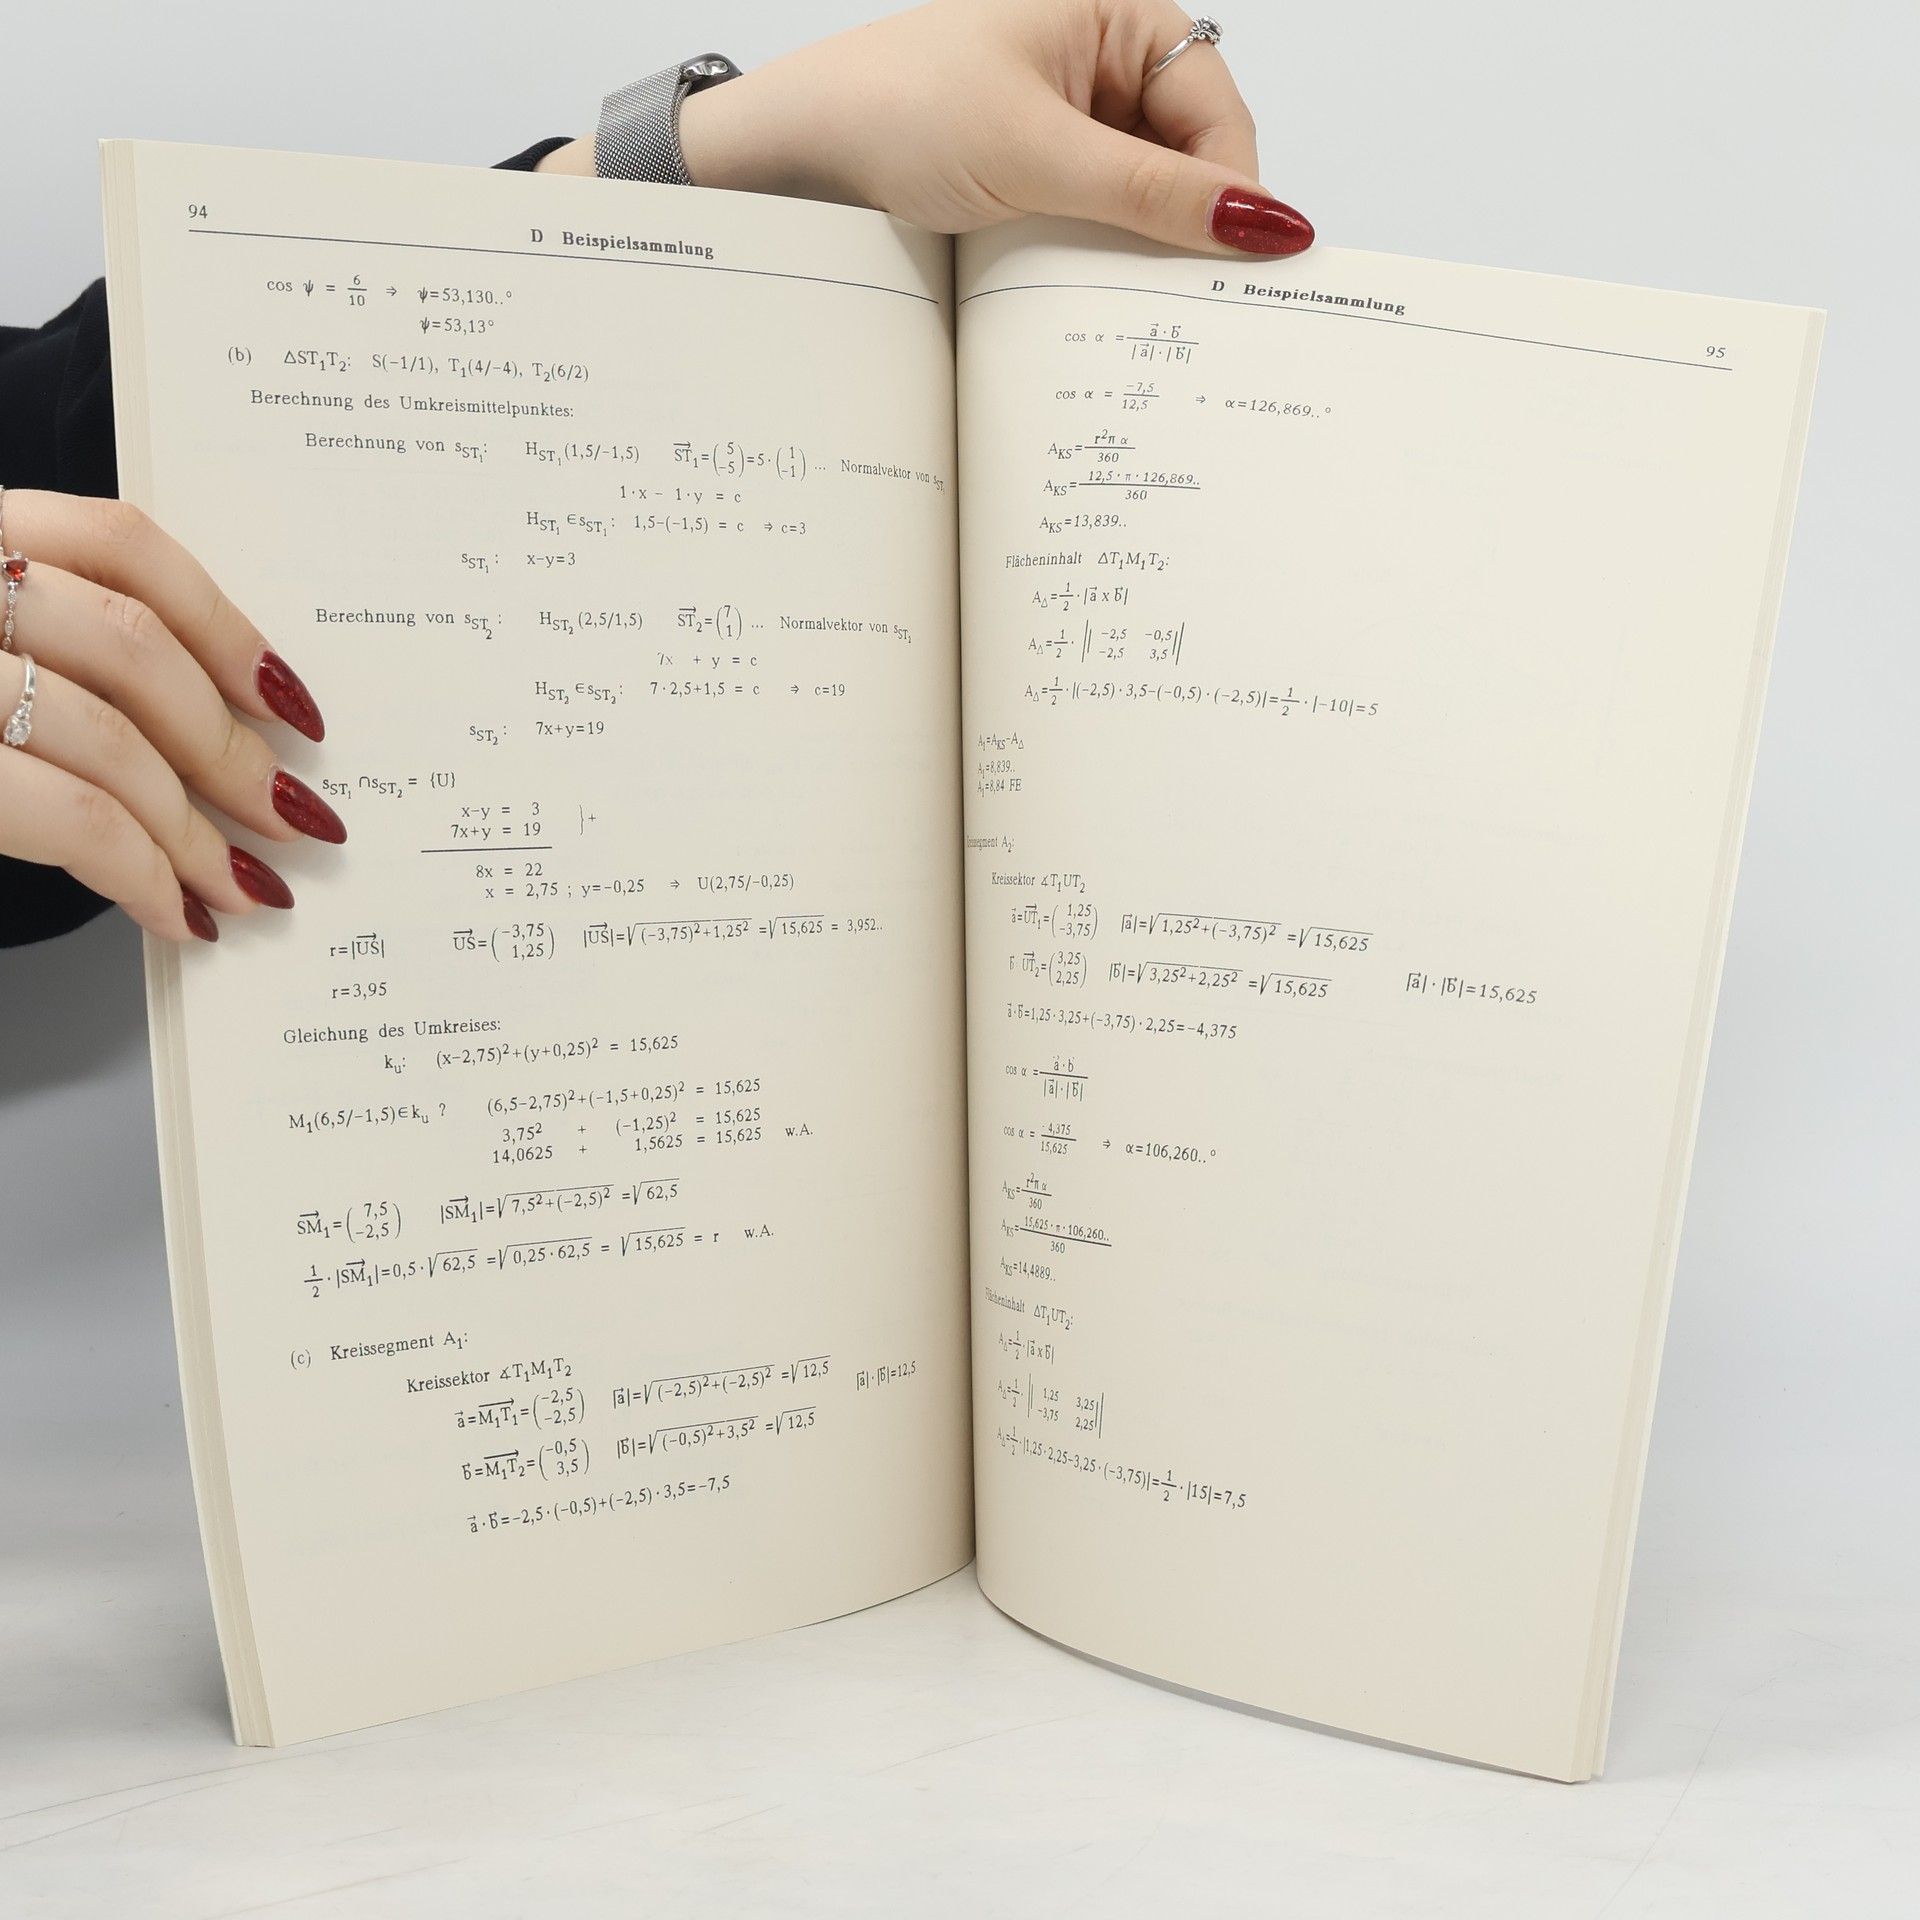 94
D Beispielsammlung
cos ψ = 6/10 ⇒ ψ=53,130..°
ψ=53,13°
(b) ΔST₁T₂: S(−1/1), T₁(4/−4), T₂(6/2)
Berechnung des Umkreismittelpunktes:
Berechnung von s_ST₁: H_ST₁(1,5/−1,5) ST₁→=(5 −5)=5·(1 −1) ... Normalvektor von s_ST₁
1·x − 1·y = c
H_ST₁ ∈ s_ST₁: 1,5−(−1,5) = c ⇒ c=3
s_ST₁: x−y=3
Berechnung von s_ST₂: H_ST₂(2,5/1,5) ST₂→=(7 1) ... Normalvektor von s_ST₂
7x + y = c
H_ST₂ ∈ s_ST₂: 7·2,5+1,5 = c ⇒ c=19
s_ST₂: 7x+y=19
s_ST₁ ∩ s_ST₂ = {U}
x−y = 3
7x+y = 19 }+
8x = 22
x = 2,75 ; y=−0,25 ⇒ U(2,75/−0,25)
r=|US→| US→=(−3,75 1,25) |US→|=√(−3,75)²+1,25² =√15,625 = 3,952..
r=3,95
Gleichung des Umkreises:
k_u: (x−2,75)²+(y+0,25)² = 15,625
M₁(6,5/−1,5)∈k_u ? (6,5−2,75)²+(−1,5+0,25)² = 15,625
3,75² + (−1,25)² = 15,625
14,0625 + 1,5625 = 15,625 w.A.
SM₁→=(7,5 −2,5) |SM₁→|=√7,5²+(−2,5)² =√62,5
1/2·|SM₁→|=0,5·√62,5 =√0,25·62,5 = √15,625 = r w.A.
(c) Kreissegment A₁:
Kreissektor ∡T₁M₁T₂
a→=M₁T₁→=(−2,5 −2,5) |a→|=√(−2,5)²+(−2,5)² =√12,5 |a→|·|b→|=12,5
b→=M₁T₂→=(−0,5 3,5) |b→|=√(−0,5)²+3,5² =√12,5
a→·b→=−2,5·(−0,5)+(−2,5)·3,5=−7,5
D Beispielsammlung
95
cos α = a→·b→/|a→|·|b→|
cos α = −7,5/12,5 ⇒ α=126,869..°
A_KS=r²π α/360
A_KS=12,5·π·126,869../360
A_KS=13,839..
Flächeninhalt ΔT₁M₁T₂:
A_Δ=1/2·|a→ x b→|
A_Δ=1/2·||−2,5 −0,5
−2,5 3,5||
A_Δ=1/2·|(−2,5)·3,5−(−0,5)·(−2,5)|=1/2·|−10|=5
A₁=A_KS−A_Δ
A₁=8,839..
A₁=8,84 FE
Kreissegment A₂:
Kreissektor ∡T₁UT₂
a→=UT₁→=(1,25 −3,75) |a→|=√1,25²+(−3,75)² =√15,625
b→ UT₂→=(3,25 2,25) |b→|=√3,25²+2,25² =√15,625 |a→|·|b→|=15,625
a→·b→=1,25·3,25+(−3,75)·2,25=−4,375
cos α = a→·b→/|a→|·|b→|
cos α = −4,375/15,625 ⇒ α=106,260..°
A_KS=r²π α/360
A_KS=15,625·π·106,260../360
A_KS=14,4889..
Flächeninhalt ΔT₁UT₂:
A_Δ=1/2·|a→ x b→|
A_Δ=1/2·||1,25 3,25
−3,75 2,25||
A_Δ=1/2·|1,25·2,25−3,25·(−3,75)|=1/2·|15|=7,5